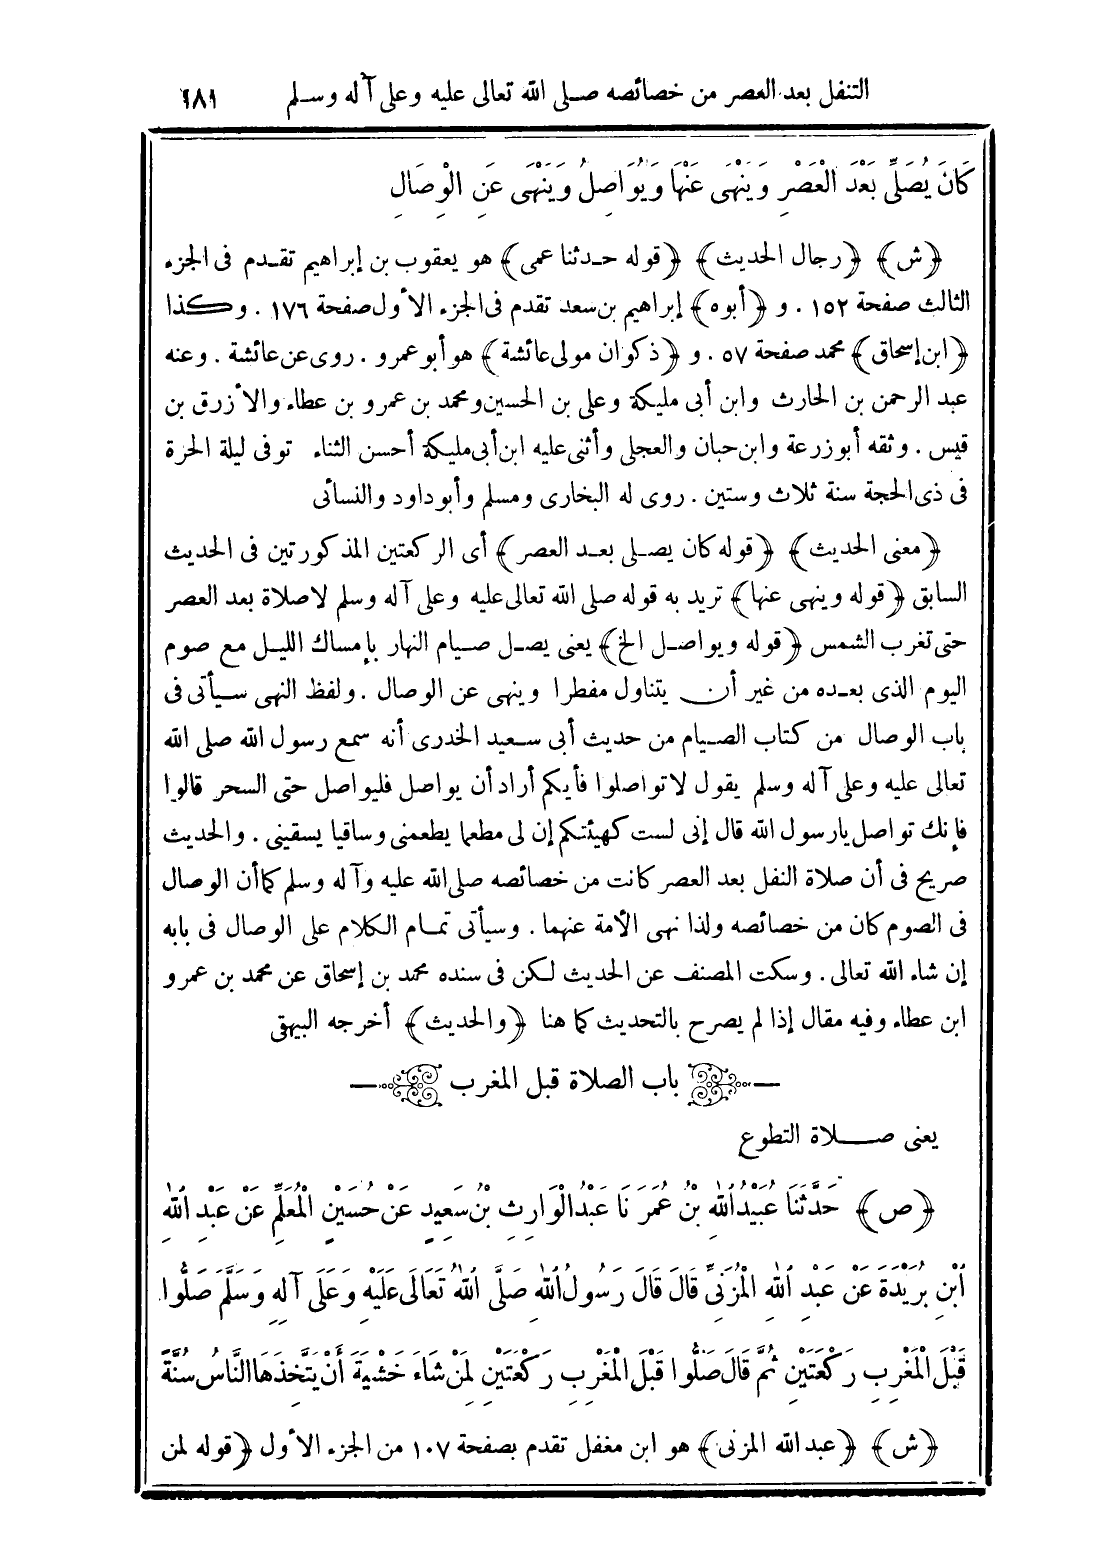 التنفل بعد العصر من خصائصه صلى الله تعالى عليه وعلى آله وسلم ١٨٩
كَانَ يُصَلِّى بَعْدَ الْعَصْرِ وَيَنْهَى عَنْهَا وَيُوَاصِلُ وَيَنْهَى عَنِ الْوِصَالِ
﴿ش﴾ ﴿رجال الحديث﴾ ﴿قوله حدثنا عمى﴾ هو يعقوب بن إبراهيم تقدم فى الجزء
الثالث صفحة ١٥٢ . و ﴿أبوه﴾ إبراهيم بن سعد تقدم فى الجزء الأول صفحة ١٧٦ . وكذا
﴿ابن إسحاق﴾ محمد صفحة ٥٧ . و ﴿ذكوان مولى عائشة﴾ هو أبو عمرو . روى عن عائشة . وعنه
عبد الرحمن بن الحارث وابن أبى مليكة وعلى بن الحسين ومحمد بن عمرو بن عطاء والأزرق بن
قيس . وثقه أبو زرعة وابن حبان والعجلى وأثنى عليه ابن أبى مليكة أحسن الثناء توفى ليلة الحرة
فى ذى الحجة سنة ثلاث وستين . روى له البخارى ومسلم وأبو داود والنسائى
﴿معنى الحديث﴾ ﴿قوله كان يصلى بعد العصر﴾ أى الركعتين المذكورتين فى الحديث
السابق ﴿قوله وينهى عنها﴾ تريد به قوله صلى الله تعالى عليه وعلى آله وسلم لا صلاة بعد العصر
حتى تغرب الشمس ﴿قوله ويواصل الخ﴾ يعنى يصل صيام النهار بإمساك الليل مع صوم
اليوم الذى بعده من غير أن يتناول مفطرا وينهى عن الوصال . ولفظ النهى سيأتى فى
باب الوصال من كتاب الصيام من حديث أبى سعيد الخدرى أنه سمع رسول الله صلى الله
تعالى عليه وعلى آله وسلم يقول لا تواصلوا فأيكم أراد أن يواصل فليواصل حتى السحر قالوا
فإنك تواصل يا رسول الله قال إنى لست كهيئتكم إن لى مطعما يطعمنى وساقيا يسقينى . والحديث
صريح فى أن صلاة النفل بعد العصر كانت من خصائصه صلى الله عليه وآله وسلم كما أن الوصال
فى الصوم كان من خصائصه ولذا نهى الأمة عنهما . وسيأتى تمام الكلام على الوصال فى بابه
إن شاء الله تعالى . وسكت المصنف عن الحديث لكن فى سنده محمد بن إسحاق عن محمد بن عمرو
ابن عطاء وفيه مقال إذا لم يصرح بالتحديث كما هنا ﴿والحديث﴾ أخرجه البيهقى
باب الصلاة قبل المغرب
يعنى صلاة التطوع
﴿ص﴾ حَدَّثَنَا عُبَيْدُ اللهِ بْنُ عُمَرَ نَا عَبْدُ الْوَارِثِ بْنُ سَعِيدٍ عَنْ حُسَيْنٍ الْمُعَلِّمِ عَنْ عَبْدِ اللهِ
ابْنِ بُرَيْدَةَ عَنْ عَبْدِ اللهِ الْمُزَنِىِّ قَالَ قَالَ رَسُولُ اللهِ صَلَّى اللهُ تَعَالَى عَلَيْهِ وَعَلَى آلِهِ وَسَلَّمَ صَلُّوا
قَبْلَ الْمَغْرِبِ رَكْعَتَيْنِ ثُمَّ قَالَ صَلُّوا قَبْلَ الْمَغْرِبِ رَكْعَتَيْنِ لِمَنْ شَاءَ خَشْيَةَ أَنْ يَتَّخِذَهَا النَّاسُ سُنَّةً
﴿ش﴾ ﴿عبد الله المزنى﴾ هو ابن مغفل تقدم بصفحة ١٠٧ من الجزء الأول ﴿قوله لمن